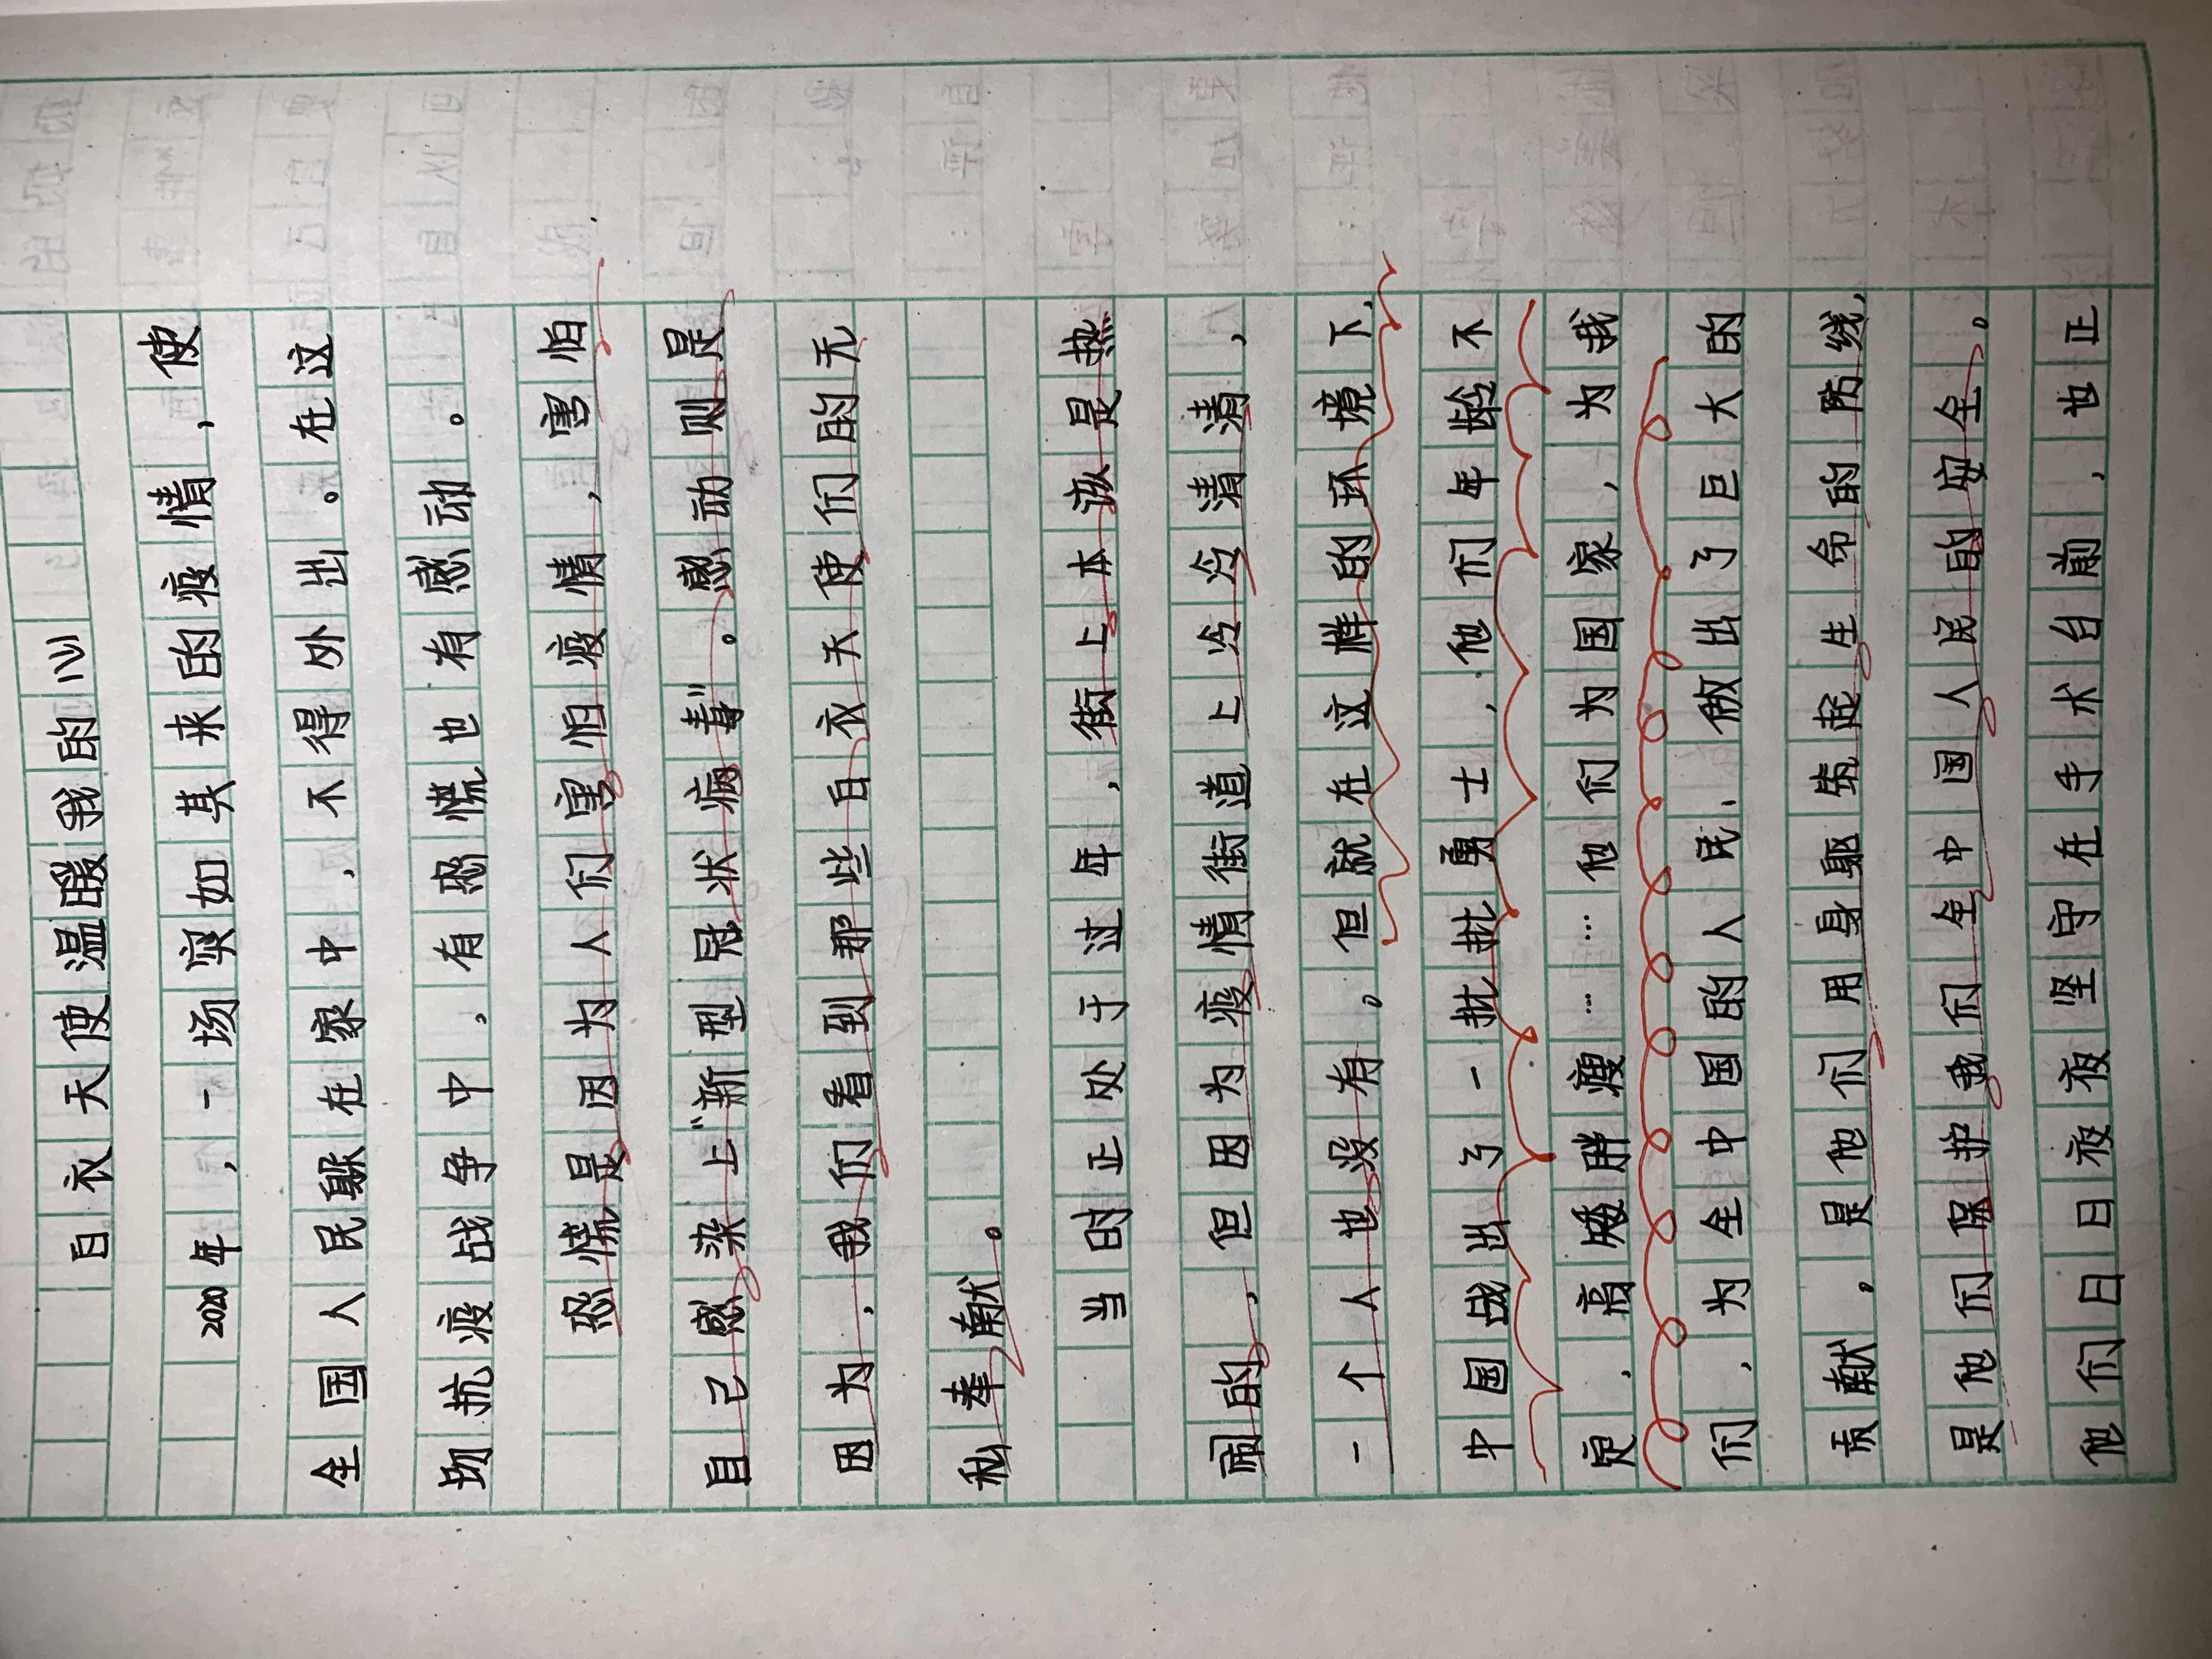 白衣天使温暖我的心
2020年，一场突如其来的疫情，使
全国人民躲在家中，不得外出。在这
场抗疫战争中，有恐慌也有感动。
恐慌是因为人们害怕疫情，害怕
自己感染上“新型冠状病毒”。感动则是
因为，我们看到那些白衣天使们的无
私奉献。
当时正处于过年，街上本该是热
闹的，但因为疫情街道上冷冷清清，
一个人也没有。但就在这样的环境下，
中国战出了一批批勇士，他们年龄不
定，高矮胖瘦……他们为国家，为我
们，为全中国的人民，做出了巨大的
贡献。是他们用身躯筑起生命的防线，
是他们保护我们全中国人民的安全。
他们日日夜夜坚守在手术台前，也正